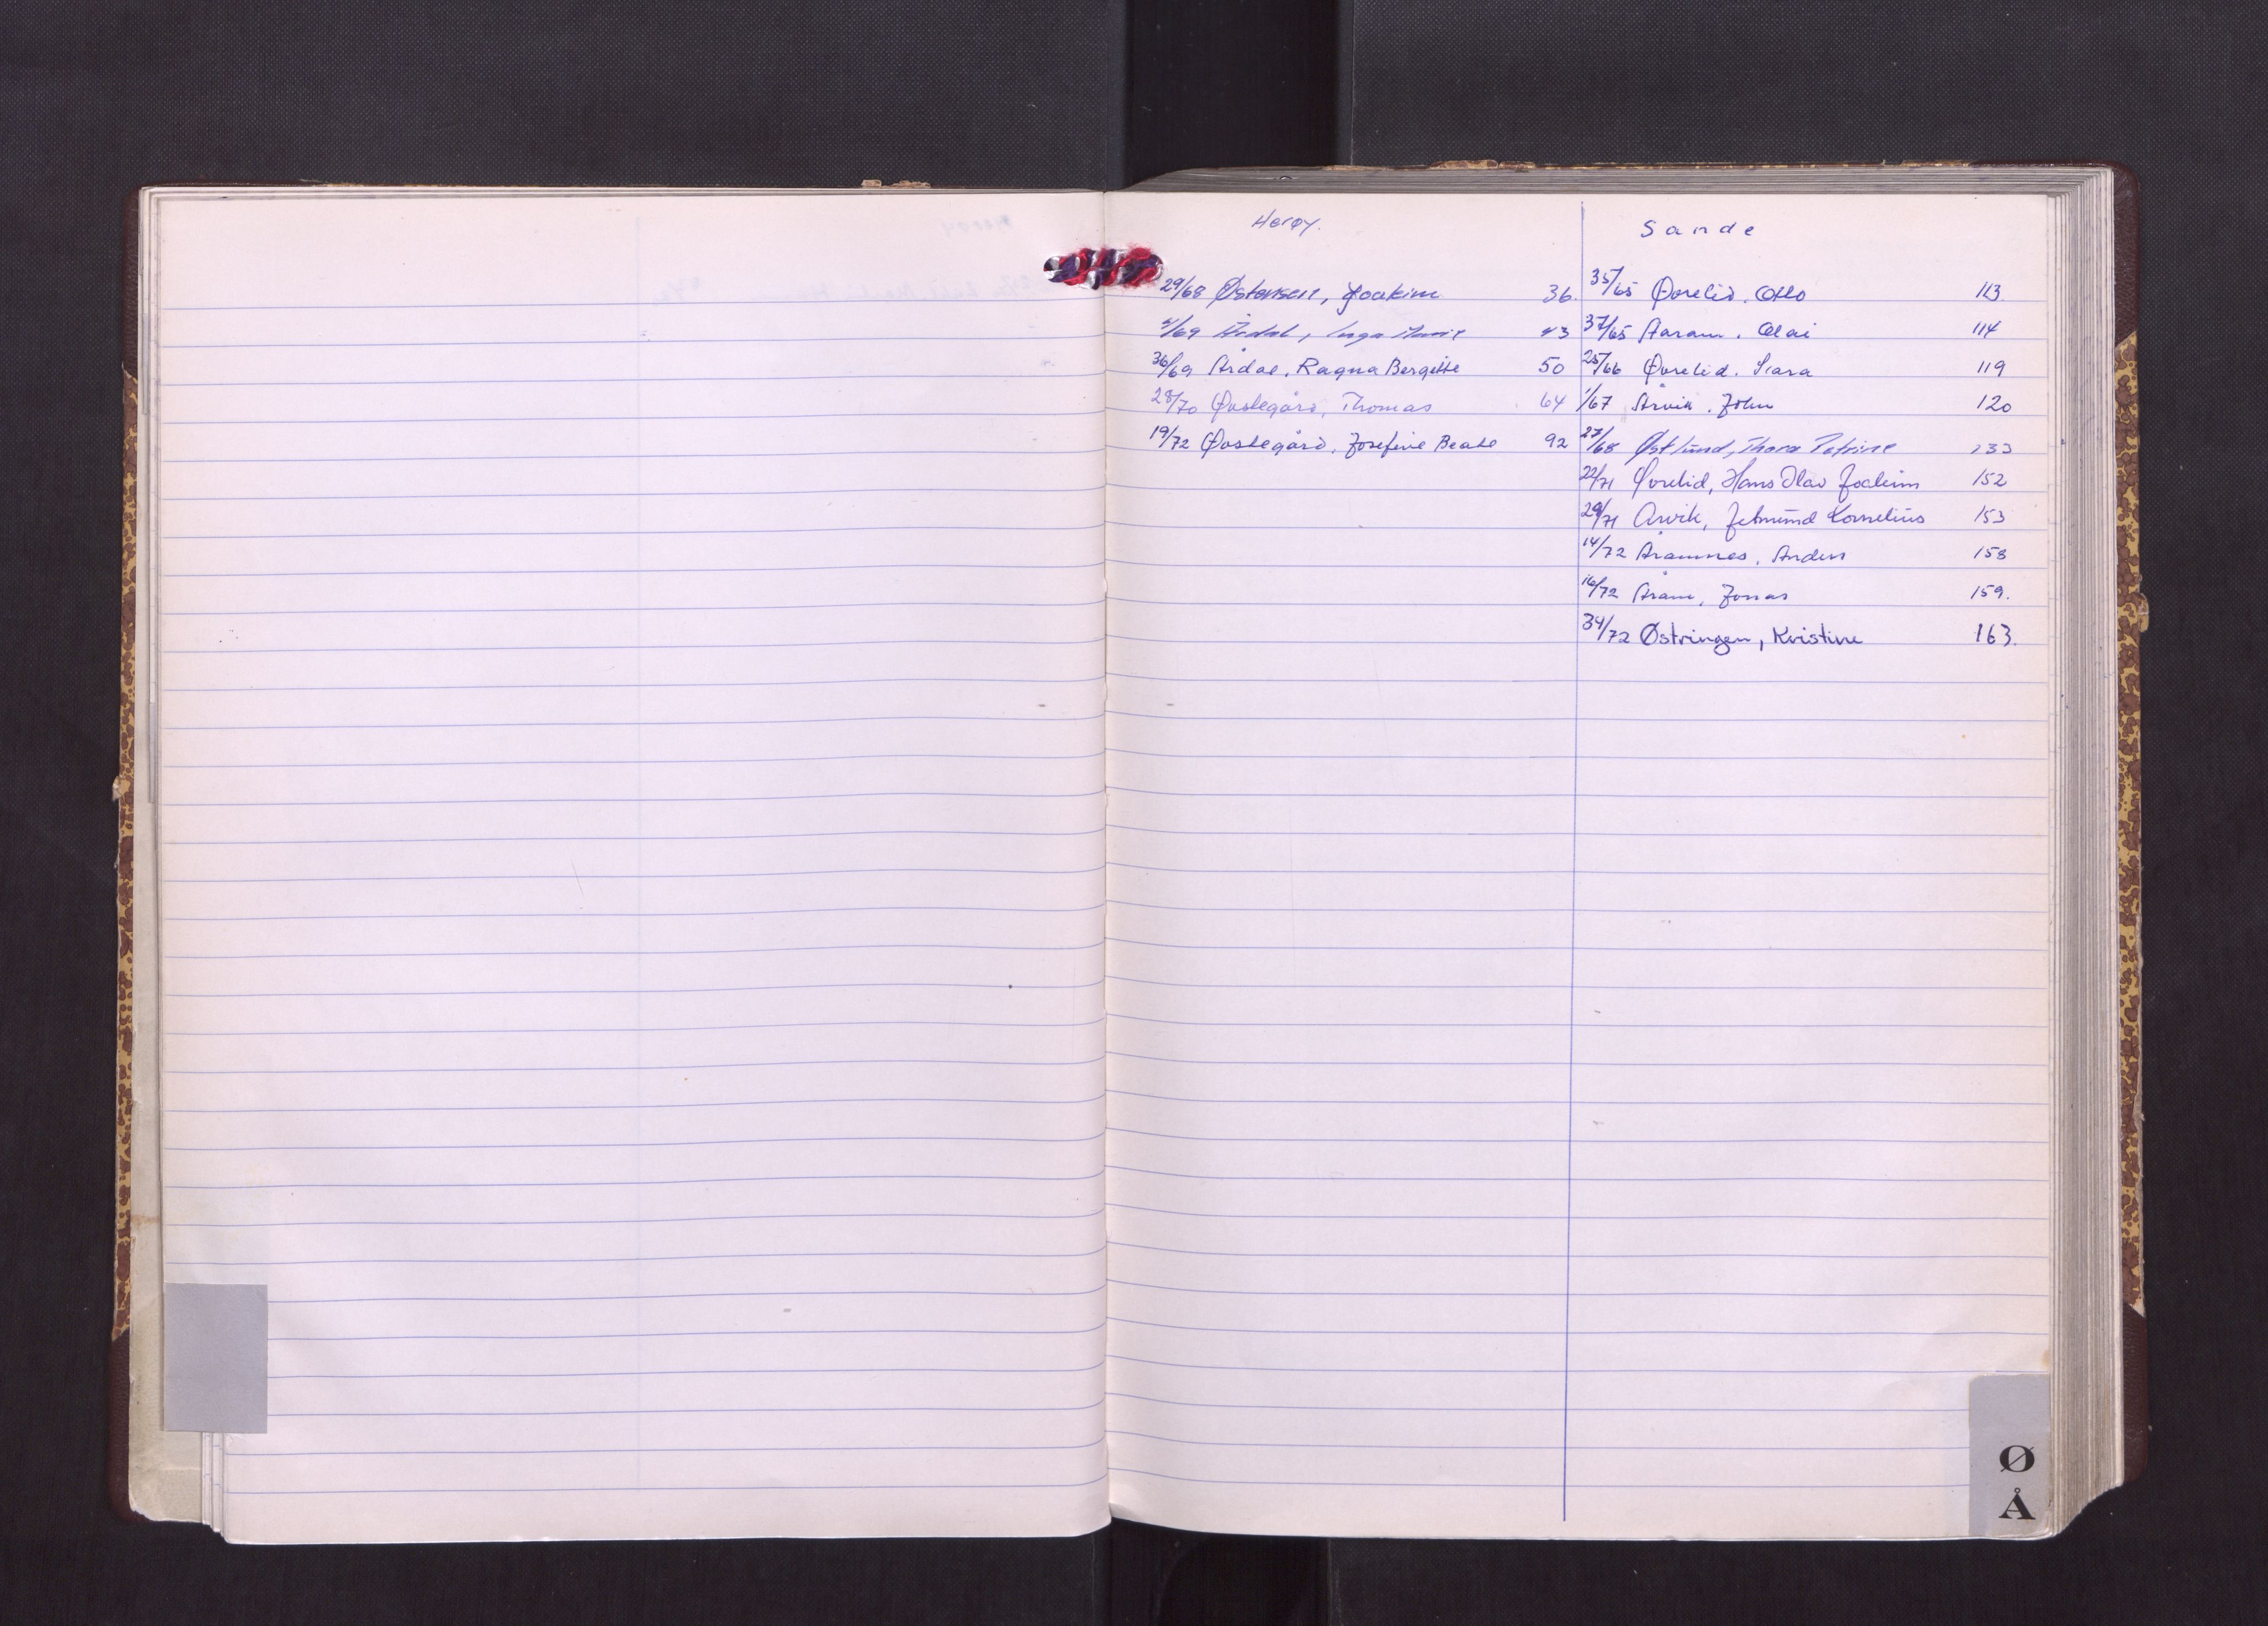 Herøy.
29/68 Østensen, Joakim 36.
4/69 Årdal, Inga Marie 43
36/69 Årdal, Ragna Bergitte 50
28/70 Øvstegård, Thomas 64
19/72 Øvstegård, Josefine Beate 92
Sande
35/65 Øvrelid, Otto 113.
37/65 Aaram, Olai 114
25/66 Øvrelid, 119
1/67 Årvik, John 120
27/68 Østlund, Thora Petrine 133
22/71 Øvrelid, Hans Olav Joakim 152
29/71 Årvik, Jetmund Kornelius 153
14/72 Åramnes, Anders 158
16/72 Åram, Jonas 159.
34/72 Østringen, Kristine 163.
Ø
Å